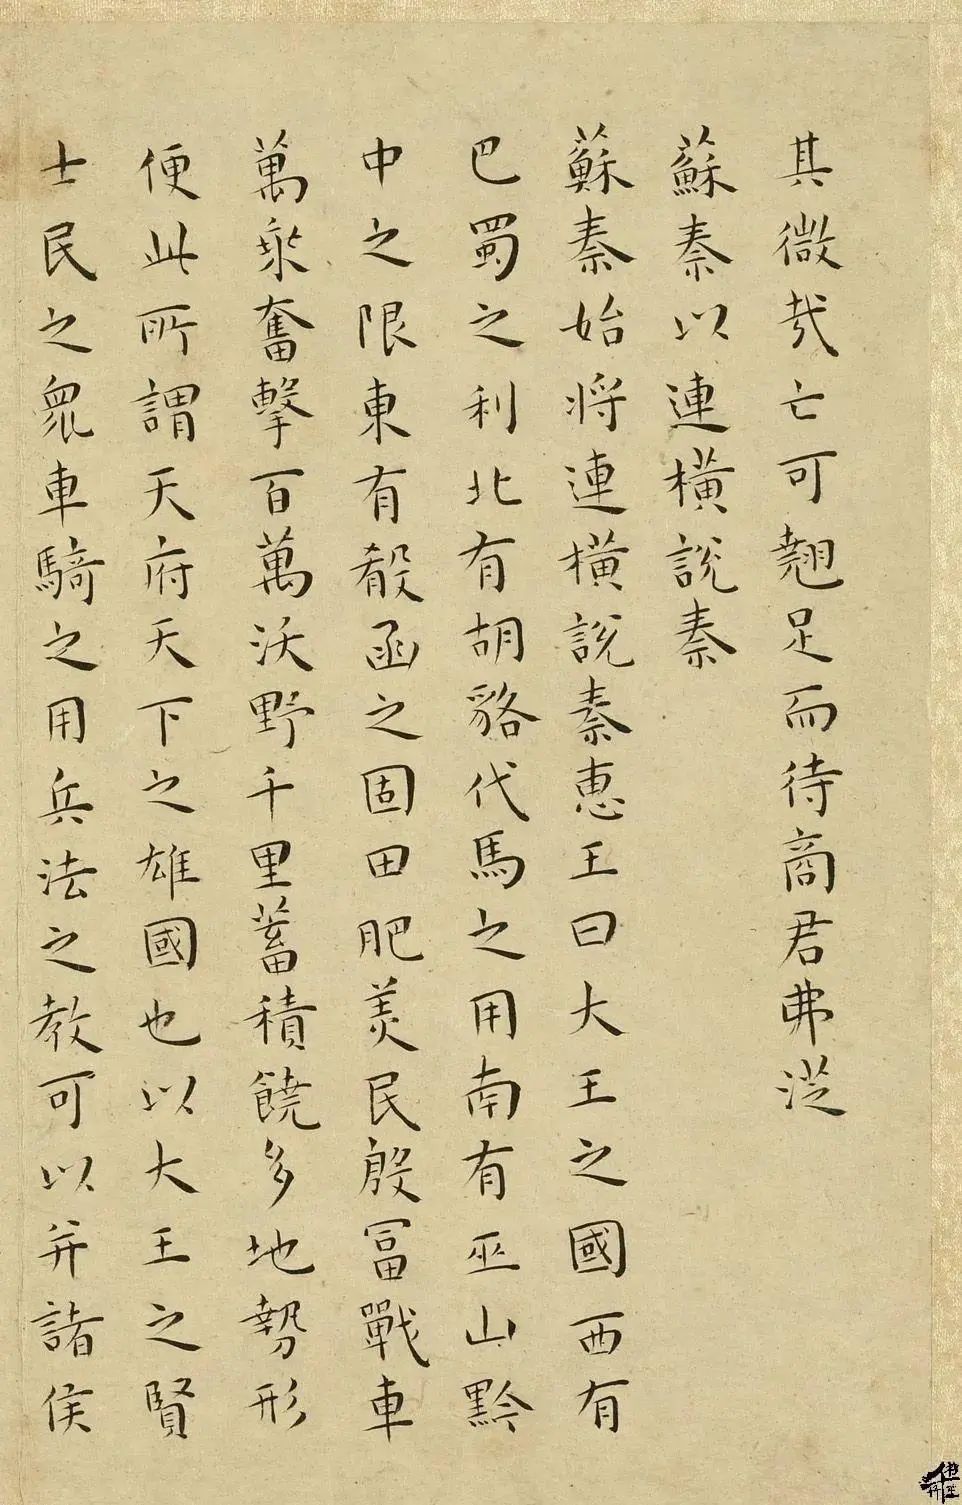 其微哉亡可翹足而待商君弗從
蘇秦以連橫說秦
蘇秦始將連橫說秦惠王曰大王之國西有
巴蜀之利北有胡貉代馬之用南有巫山黔
中之限東有殽函之固田肥美民殷富戰車
萬乘奮擊百萬沃野千里蓄積饒多地勢形
便此所謂天府天下之雄國也以大王之賢
士民之眾車騎之用兵法之教可以并諸侯